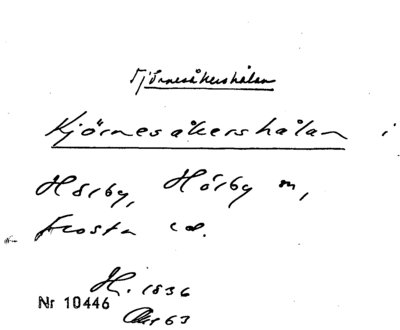 Kjörnesåkershålan
Kjörnesåkershålan i
Hörby, Hörby m,
Frosta
H. 1836
Nr 10446
63